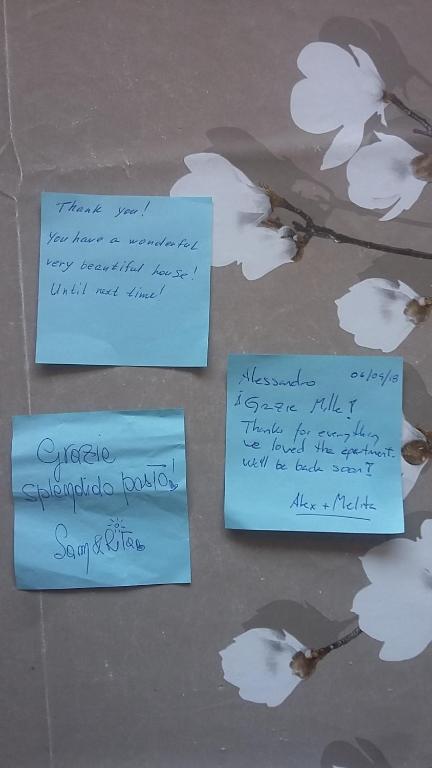 Thank you!
You have a wonderful
very beautiful house!
Until next time!
Alessandro 06/09/18
¡Grazie Mille!
Thanks for everything
we loved the apartment.
We'll be back soon!
Alex + Melita
Grazie
splendido posto!
Sam & Rita